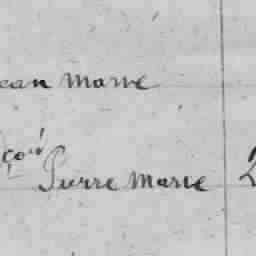 ean Marie
çois
Pierre Marie 2